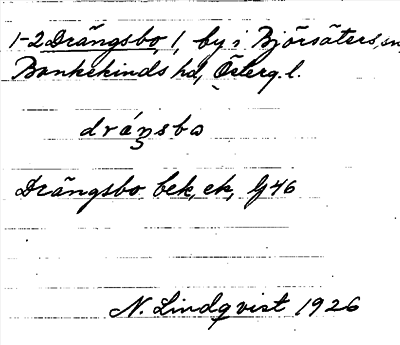 1-2 Drängsbo 1, by i Björsäters sn,
Bankekinds hd, Österg. l.
dráŋsbo
Drängsbo bek, ek, G46
N. Lindqvist 1926